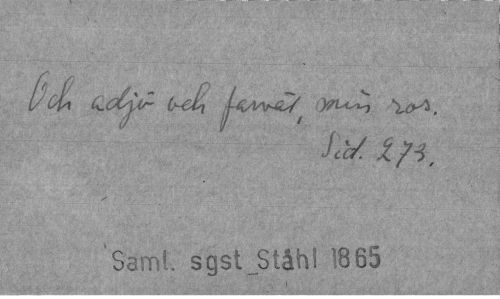 Och adjö och farväl, min ros.
Sid. 273.
Saml. sgst_Ståhl 1865